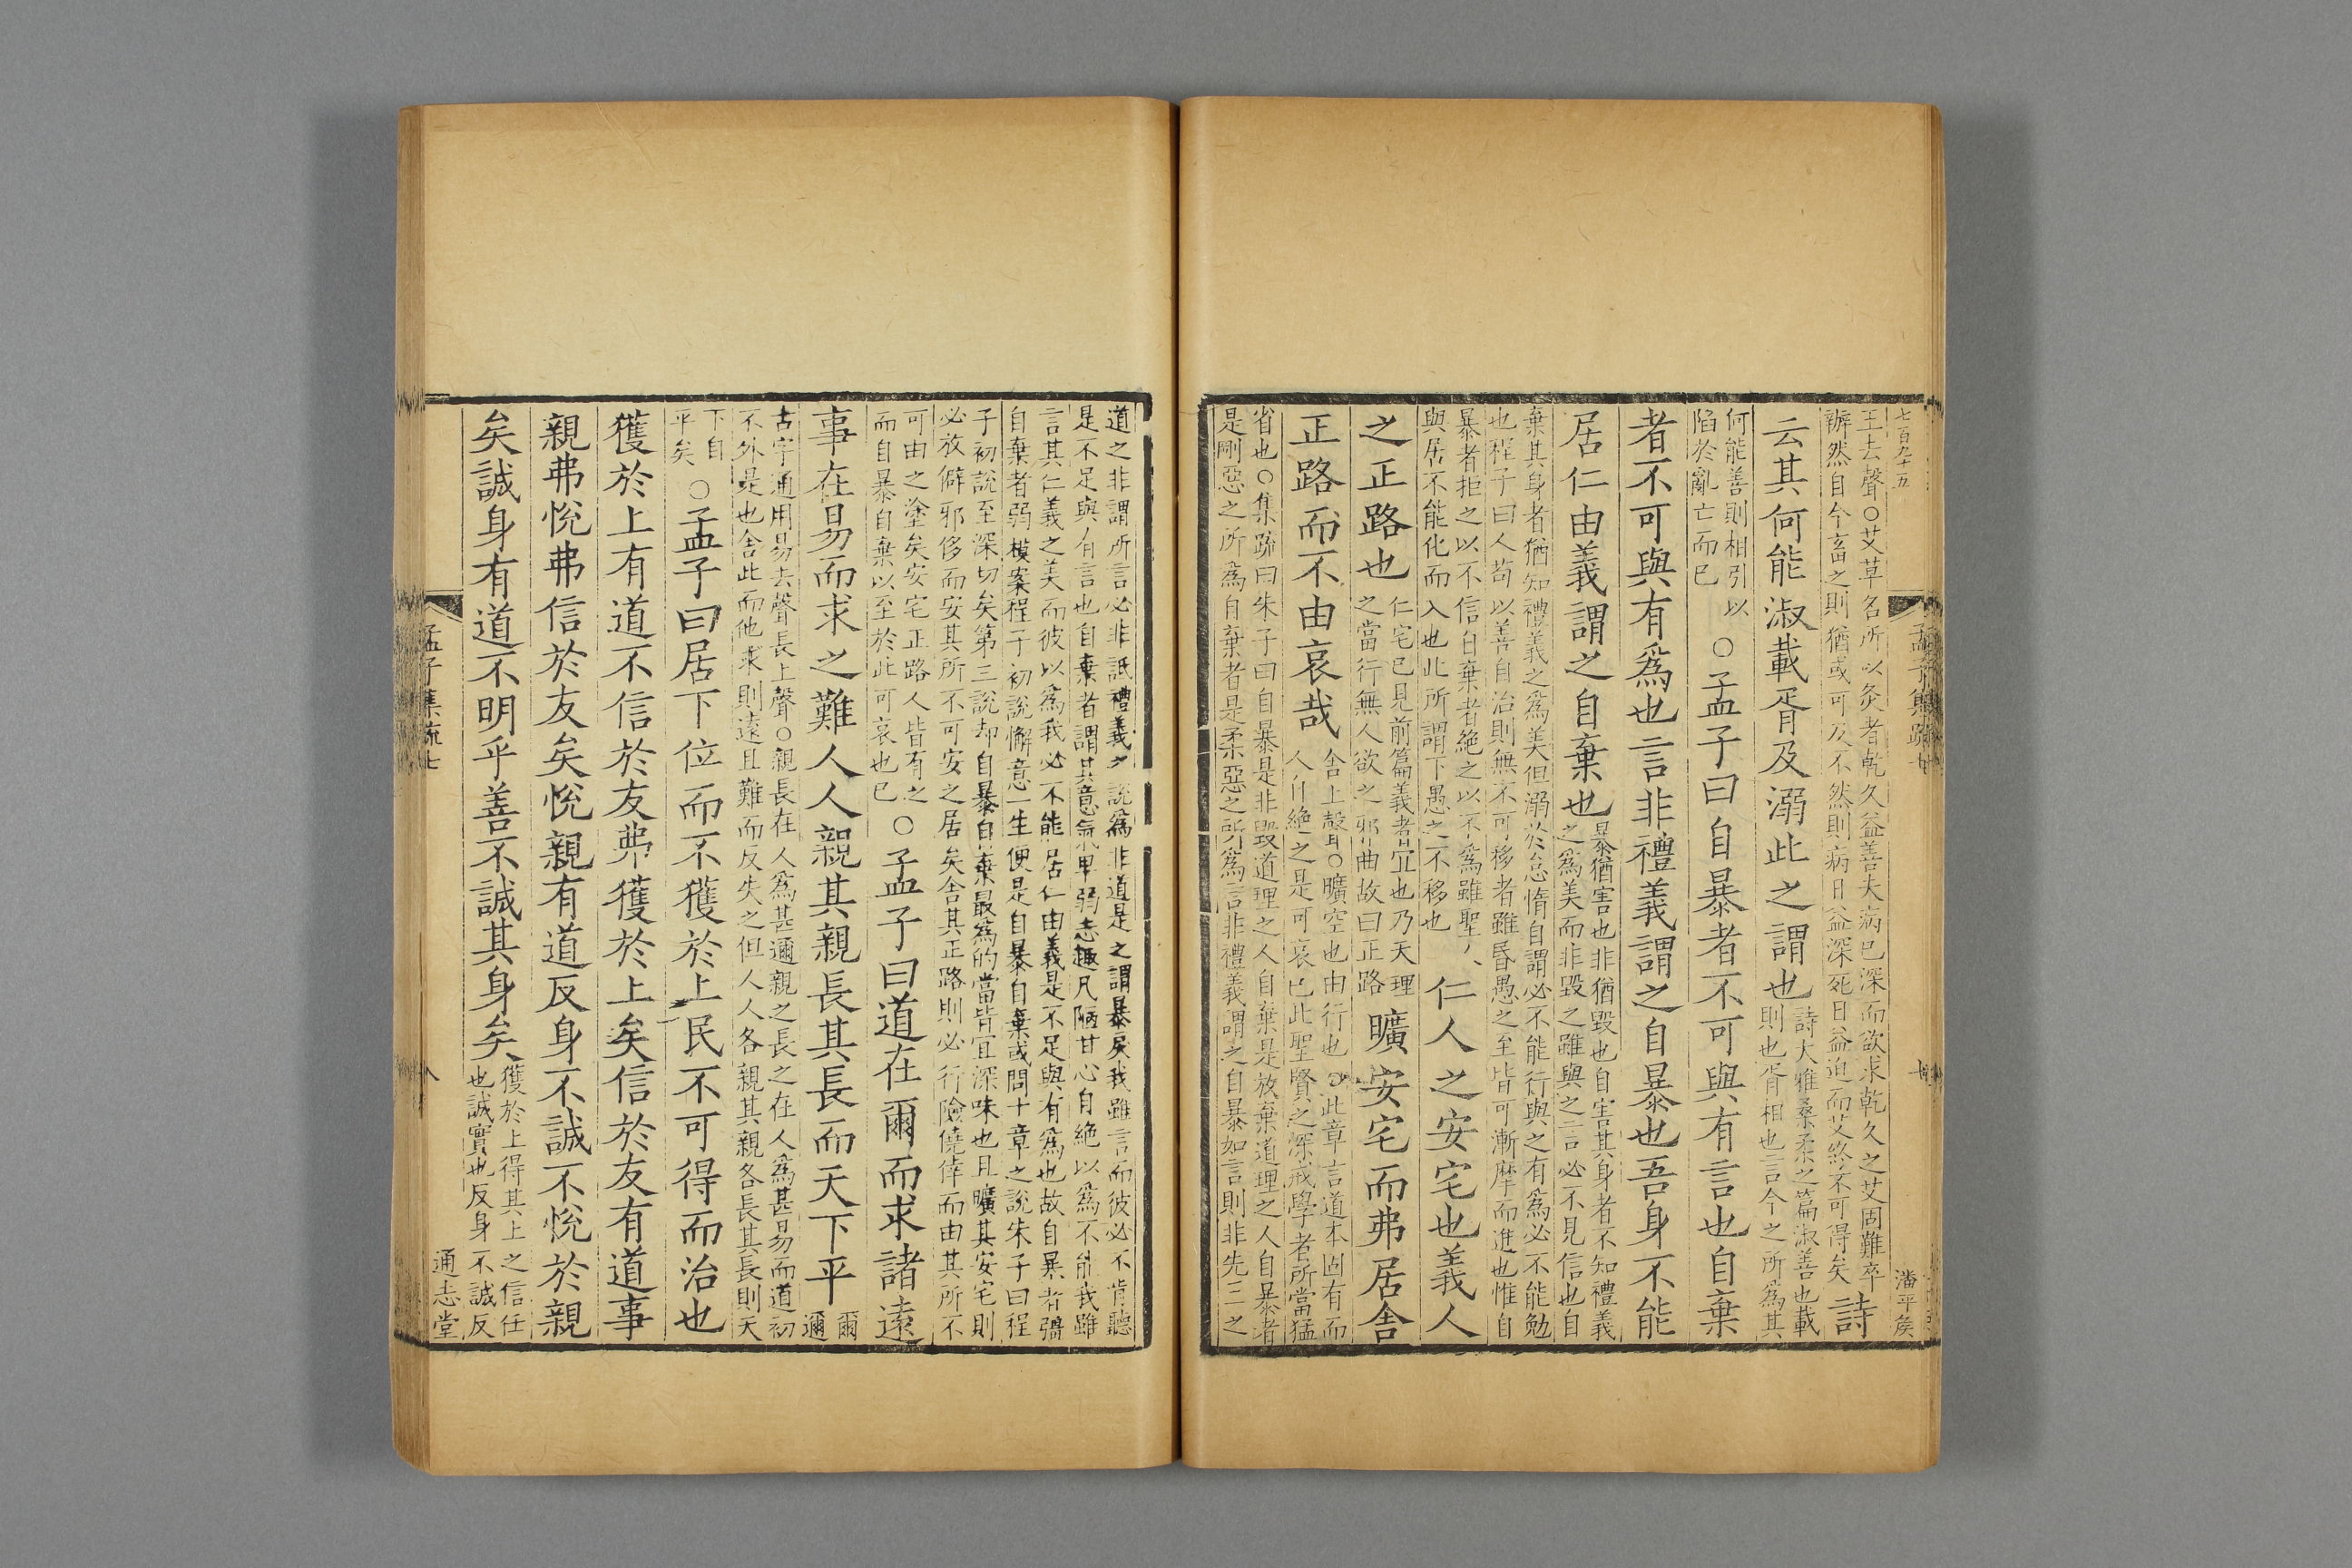 七百九十五
王去聲○艾草名所以灸者乾久益善夫病已深而欲求乾久之艾固難卒
辦然自今畜之則猶或可及不然則病日益深死日益迫而艾終不可得矣
詩
云其何能淑載胥及溺此之謂也
詩大雅桑柔之篇淑善也載
則也胥相也言今之所爲其
何能善則相引以
陷於亂亡而已
○孟子曰自暴者不可與有言也自棄
者不可與有爲也言非禮義謂之自暴也吾身不能
居仁由義謂之自棄也
暴猶害也非猶毀也自害其身者不知禮義
之爲美而非毀之雖與之言必不見信也自
棄其身者猶知禮義之爲美但溺於怠惰自謂必不能行與之有爲必不能勉
也程子曰人苟以善自治則無不可移者雖昏愚之至皆可漸摩而進也惟自
暴者拒之以不信自棄者絶之以不爲雖聖人
與居不能化而入也此所謂下愚之不移也
仁人之安宅也義人
之正路也
仁宅已見前篇義者宜也乃天理
之當行無人欲之邪曲故曰正路
曠安宅而弗居舍
正路而不由哀哉
舍上聲○曠空也由行也○此章言道本固有而
人自絶之是可哀已此聖賢之深戒學者所當猛
省也○集疏曰朱子曰自暴是非毀道理之人自棄是放棄道理之人自暴者
是剛惡之所爲自棄者是柔惡之所爲言非禮義謂之自暴如言則非先王之
潘平侯
道之非謂所言必非詆禮義之說爲非道是之謂暴戾我雖言而彼必不肯聽
是不足與有言也自棄者謂其意氣卑弱志趣凡陋甘心自絶以爲不能我雖
言其仁義之美而彼以爲我必不能居仁由義是不足與有爲也故自暴者彊
自棄者弱模案程子初說懈意一生便是自暴自棄或問十章之說朱子曰程
子初說至深切矣第三說却自暴自棄最爲的當皆宜深味也且曠其安宅則
必放僻邪侈而安其所不可安之居矣舍其正路則必行險僥倖而由其所不
可由之塗矣安宅正路人皆有之
而自暴自棄以至於此可哀也已
○孟子曰道在爾而求諸遠
事在易而求之難人人親其親長其長而天下平
爾
邇
古字通用易去聲長上聲○親長在人爲甚邇親之長之在人爲甚易而道初
不外是也舍此而他求則遠且難而反失之但人人各親其親各長其長則天
下自
平矣
○孟子曰居下位而不獲於上民不可得而治也
獲於上有道不信於友弗獲於上矣信於友有道事
親弗悅弗信於友矣悅親有道反身不誠不悅於親
矣誠身有道不明乎善不誠其身矣
獲於上得其上之信任
也誠實也反身不誠反
孟子集疏七
八
通志堂